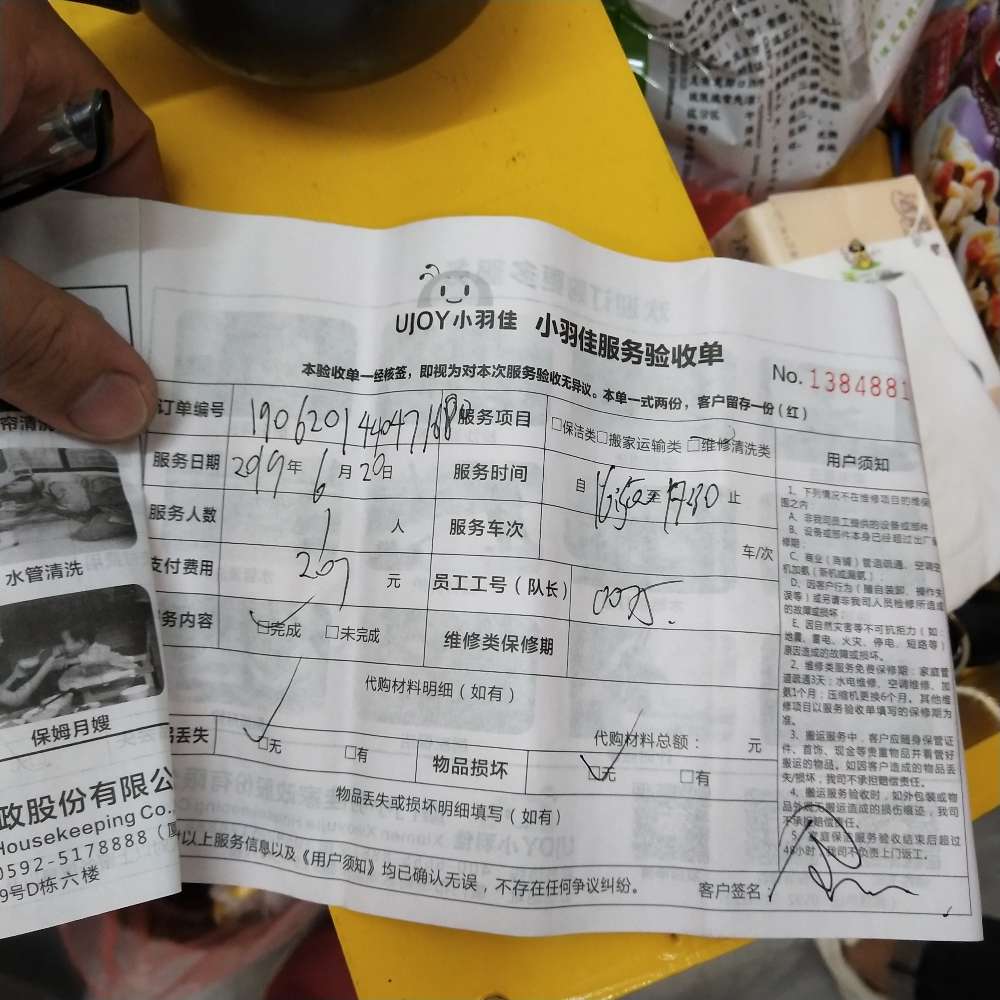 UJOY小羽佳 小羽佳服务验收单
No. 1384881
本验收单一经核签，即视为对本次服务验收无异议。本单一式两份，客户留存一份（红）
订单编号
服务项目 □保洁类□搬家运输类 □维修清洗类
服务日期 2019年6月20日
服务时间 自 至 17:30 止
服务人数 1 人
服务车次 车/次
支付费用 207 元
员工工号（队长）
务内容 □完成 □未完成
维修类保修期
代购材料明细（如有）
代购材料总额： 元
丢失 □无 □有
物品损坏 □无 □有
物品丢失或损坏明细填写（如有）
以上服务信息以及《用户须知》均已确认无误，不存在任何争议纠纷。
客户签名：
用户须知
1、下列情况不在维修项目的维保
围之内：
A、非我司员工提供的设备或部件
B、设备或部件本身已经超过出厂
修期；
C、商业（商铺）管道疏通、空调空
机加氨（新机或漏氨）；
D、因客户行为（擅自装卸、操作失
误等）或另请非我司人员检修所造成
的故障或损坏；
E、因自然灾害等不可抗拒力（如：
地震、雷电、火灾、停电、短路等）
原因造成的故障或损坏。
2、维修类服务免费保修期：家庭管
道疏通3天；水电维修、空调维修、加
氨1个月；压缩机更换6个月。其他维
修项目以服务验收单填写的保修期为
准。
3、搬运服务中，客户应随身保管证
件、首饰、现金等贵重物品并看管好
搬运的物品。如因客户造成的物品丢
失/损坏，我司不承担赔偿责任。
4、搬运服务验收时，如外包装或物
品外观无搬运造成的损伤痕迹，我司
不承担赔偿责任。
5、家庭保洁服务验收结束后超过
48小时，我司不负责上门返工。
帘清洗
水管清洗
保姆月嫂
政股份有限公
Housekeeping Co.
0592-5178888（厦
9号D栋六楼